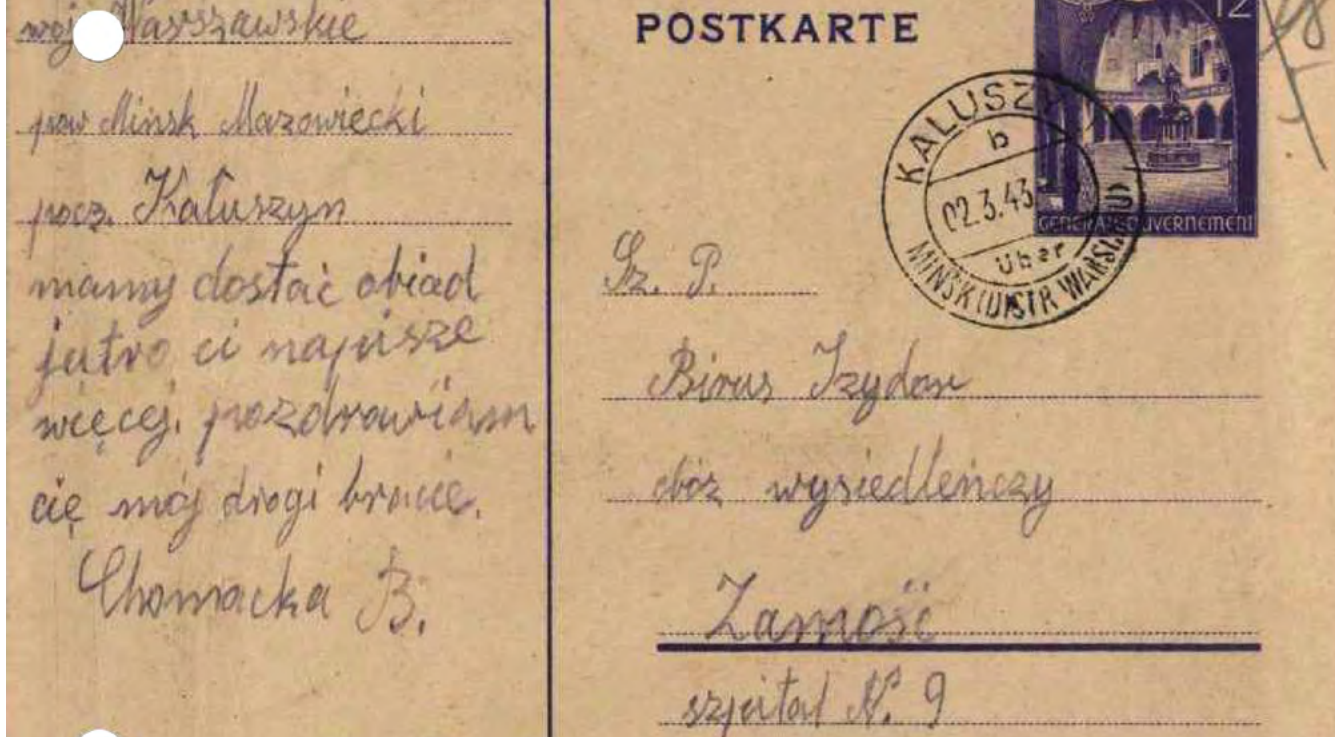 woj Warszawskie
pow Mińsk Mazowiecki
pocz. Kałuszyn
mamy dostać obiad
jutro ci napisze
więcej. pozdrawiam
cię mój drogi bracie.
Chomacka B.
POSTKARTE
12
KALUSZYN
b
02.3.43
über
MINSK (DISTR. WARSCHAU)
GENERALGOUVERNEMENT
Sz. P.
Birus Izydor
obóz wysiedleńczy
Zamość
szpital N. 9